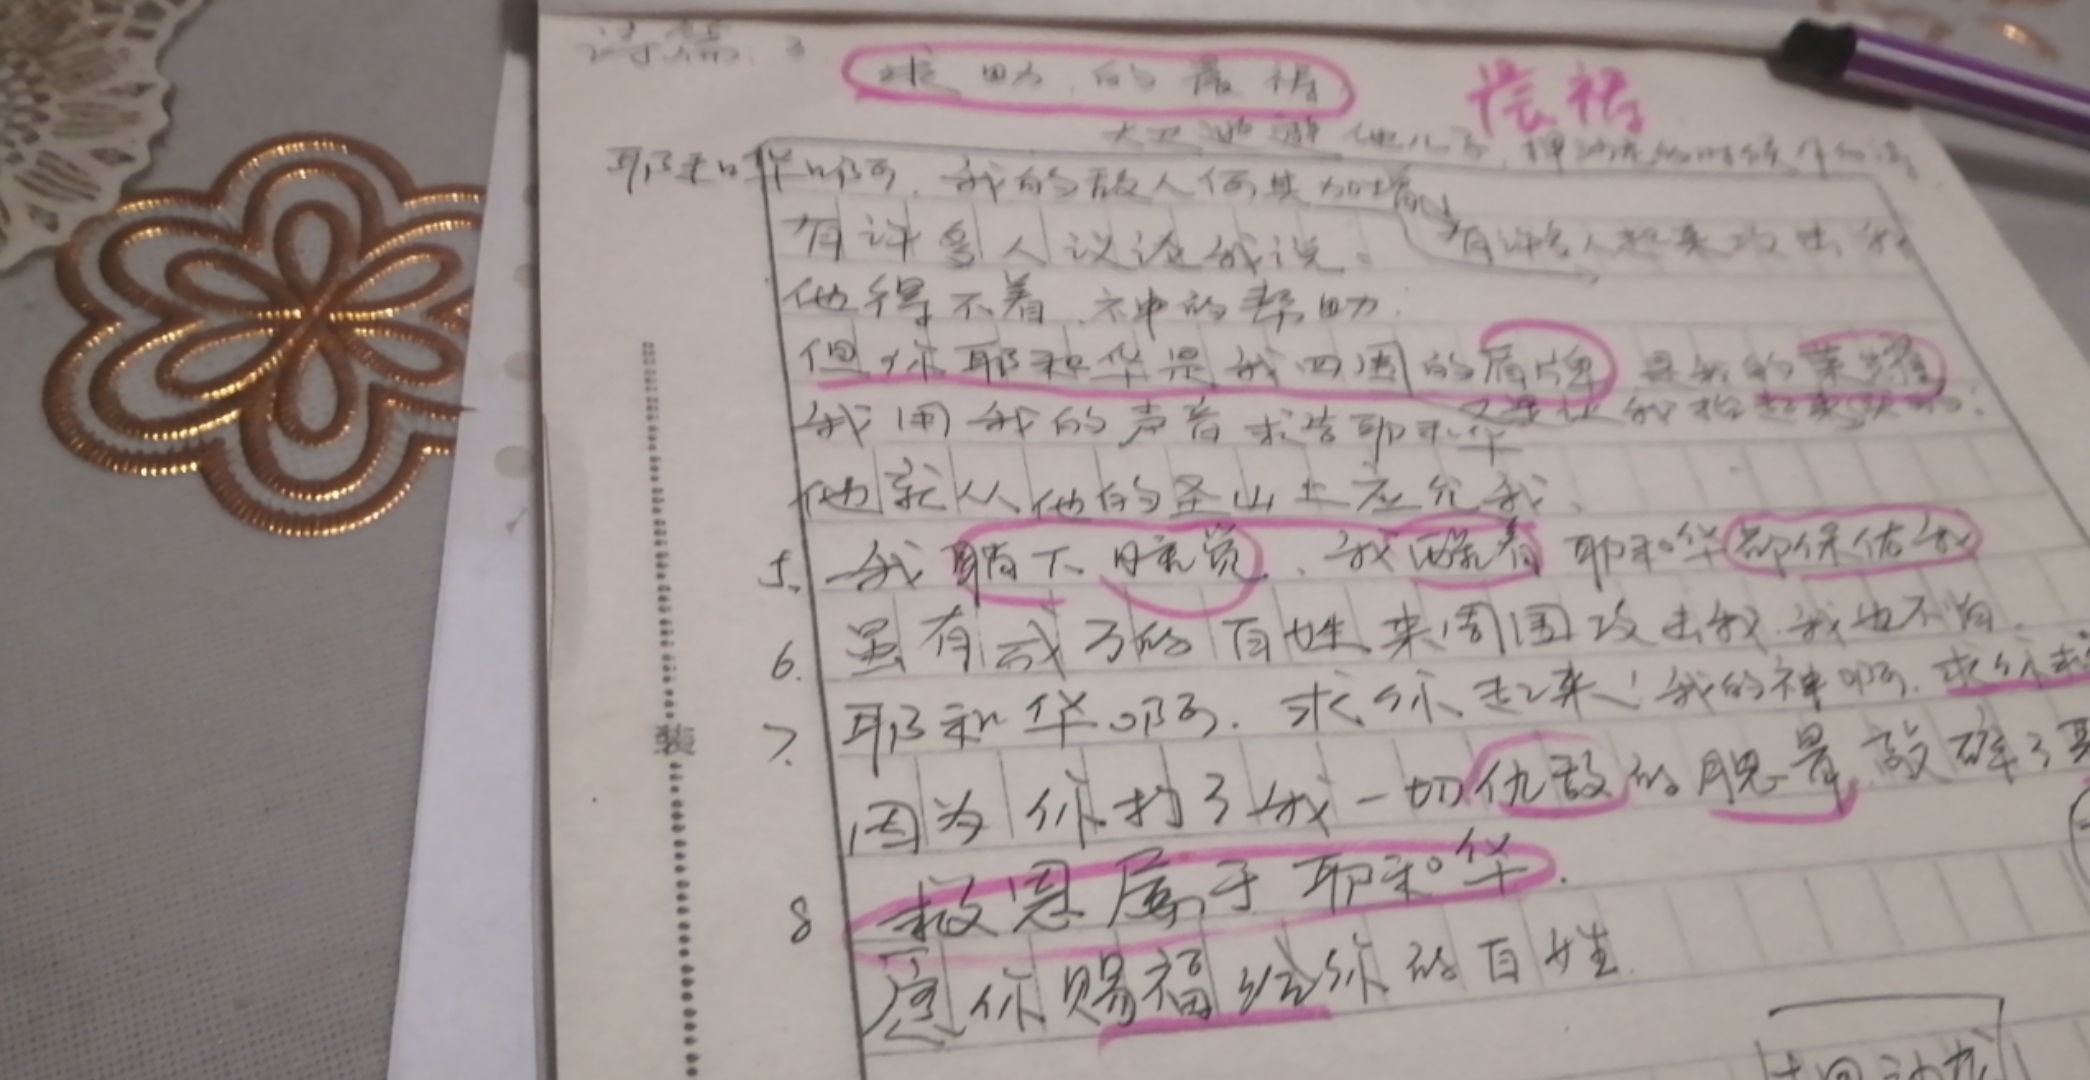 诗篇. 3
求助的晨祷 晨祷
大卫逃避他儿子押沙龙的时候作的诗
耶和华啊, 我的敌人何其加增
有许多人起来攻击我
有许多人议论我说。
他得不着神的帮助.
但你耶和华是我四围的盾牌 是我的荣耀
又是让我抬起来头的:
我用我的声音求告耶和华
他就从他的圣山上应允我、
5. 我躺下睡觉、我醒着 耶和华都保佑我
6. 虽有成万的百姓来周围攻击我 我也不怕.
7. 耶和华啊. 求你起来! 我的神啊. 求你
因为你打了我一切仇敌的腮骨 敲碎了
8 救恩属于耶和华.
愿你赐福给你的百姓
装